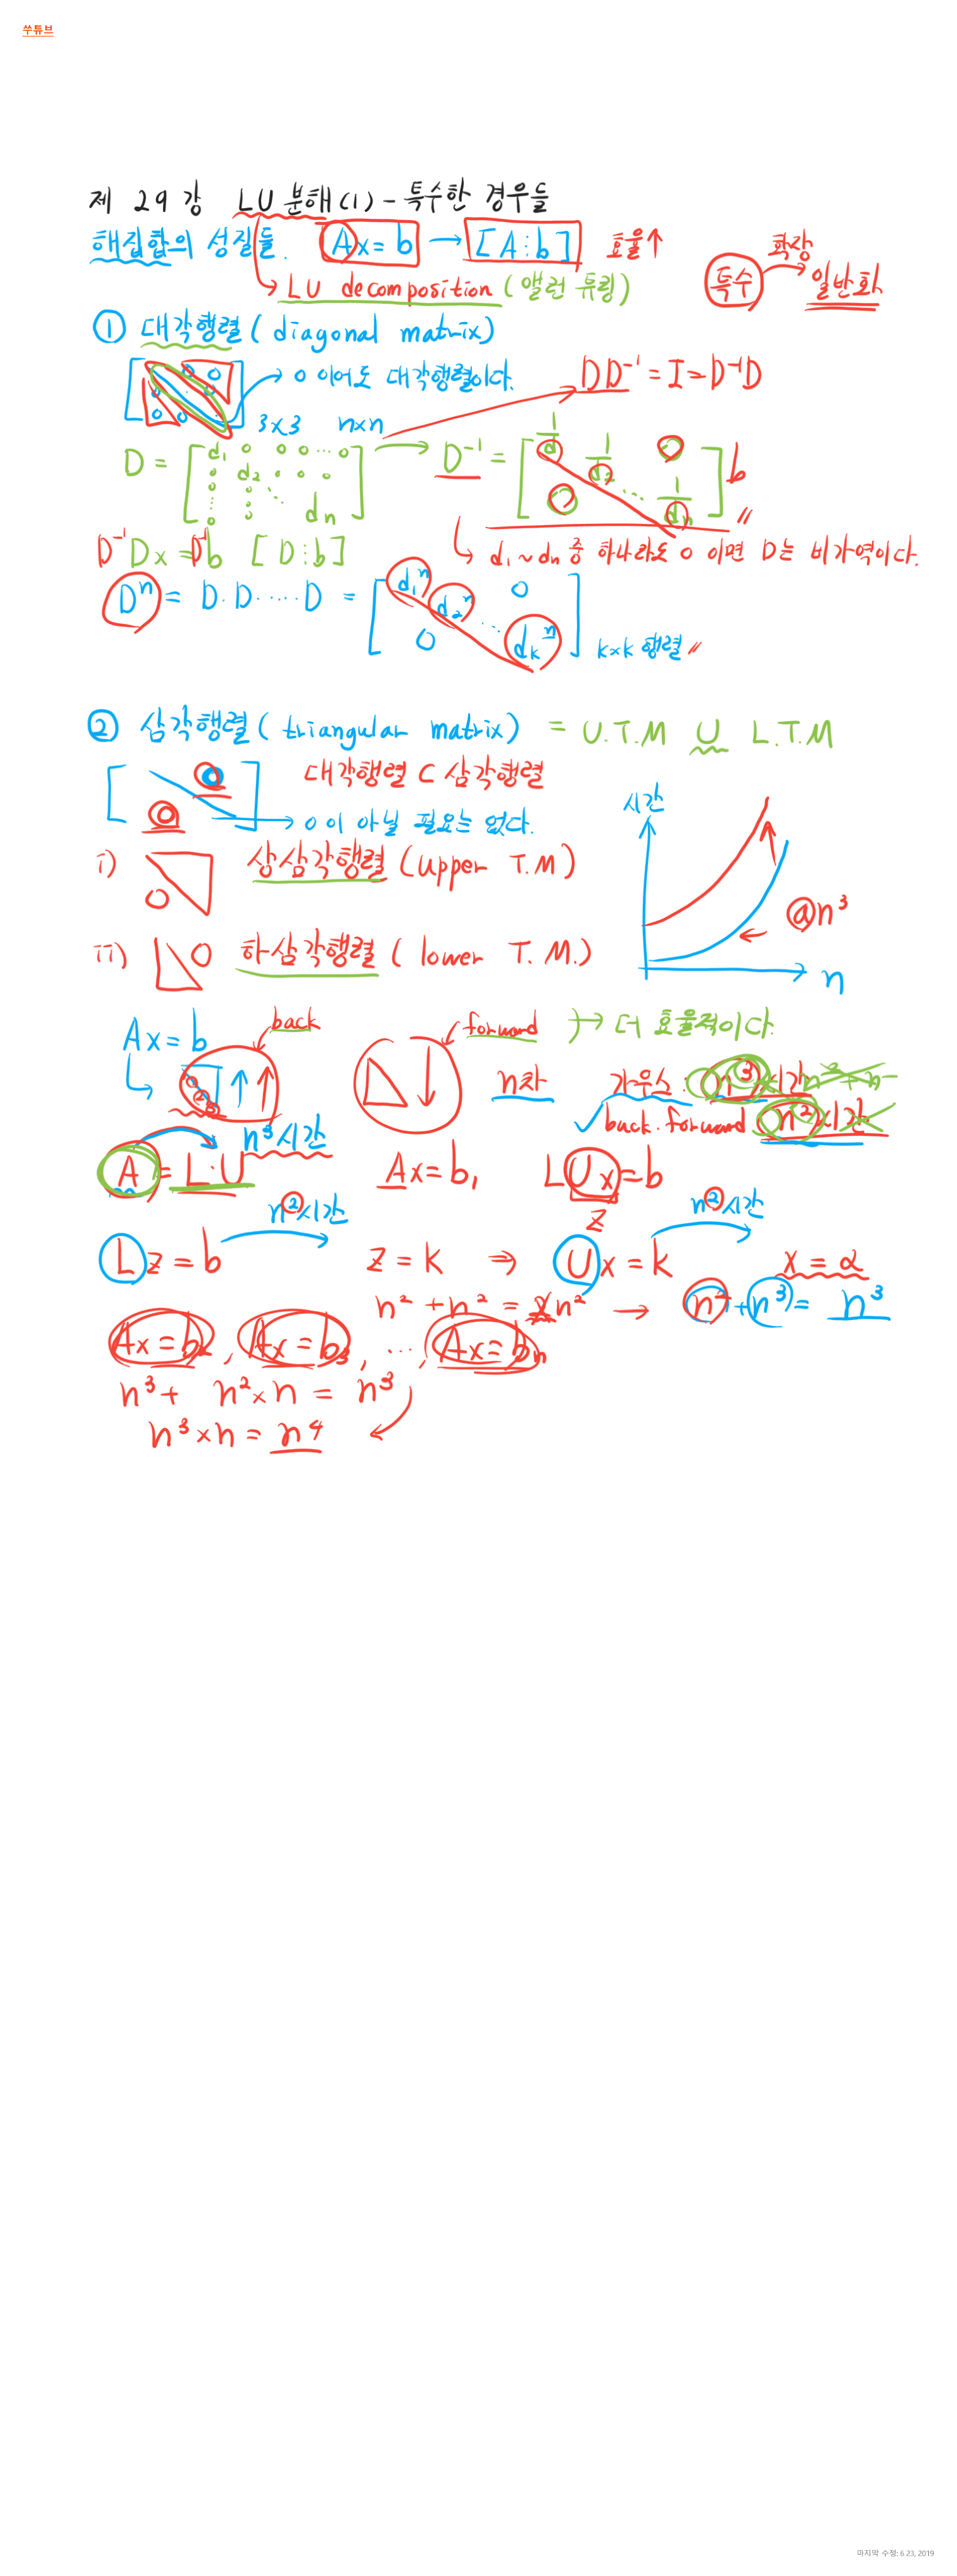 쑤튜브
제 29강 LU 분해(1) - 특수한 경우들
해집합의 성질들. Ax=b → [A⋮b] 효율↑
확장
특수 → 일반화
→ LU decomposition (앨런 튜링)
① 대각행렬 (diagonal matrix)
0 0
→ 0 이어도 대각행렬이다.
DD⁻¹ = I = D⁻¹D
0 0
3×3 n×n
D = [d₁ 0 0 0 ⋯ 0 0 d₂ 0 0 0 ⋱ dn] → D⁻¹ = [1/d₁ 1/d₂ ⋱ 1/dn 0 0] b
D⁻¹Dx = D⁻¹b [D⋮b]
↳ d₁~dn 중 하나라도 0 이면 D는 비가역이다.
Dⁿ = D·D·⋯·D = [d₁ⁿ d₂ⁿ ⋱ dₖⁿ 0 0] k×k 행렬
② 삼각행렬 (triangular matrix) = U.T.M ∪ L.T.M
대각행렬 ⊂ 삼각행렬
0 0
→ 0이 아닐 필요는 없다.
시간
i) 0 상삼각행렬 (upper T.M)
@n³
ii) 0 하삼각행렬 (lower T.M.)
n
Ax=b
back
forward }→ 더 효율적이다.
n차 가우스 : n³ 시간
✓ back.forward n² 시간
n³시간
A = L·U Ax=b, LUx=b
z
n²시간
n²시간
Lz=b z=k ⇒ Ux=k x=α
n²+n²=2n² → n²+n³= n³
Ax=b₂, Ax=b₃, ⋯, Ax=bn
n³+ n²×n = n³
n³×n = n⁴
마지막 수정: 6 23, 2019